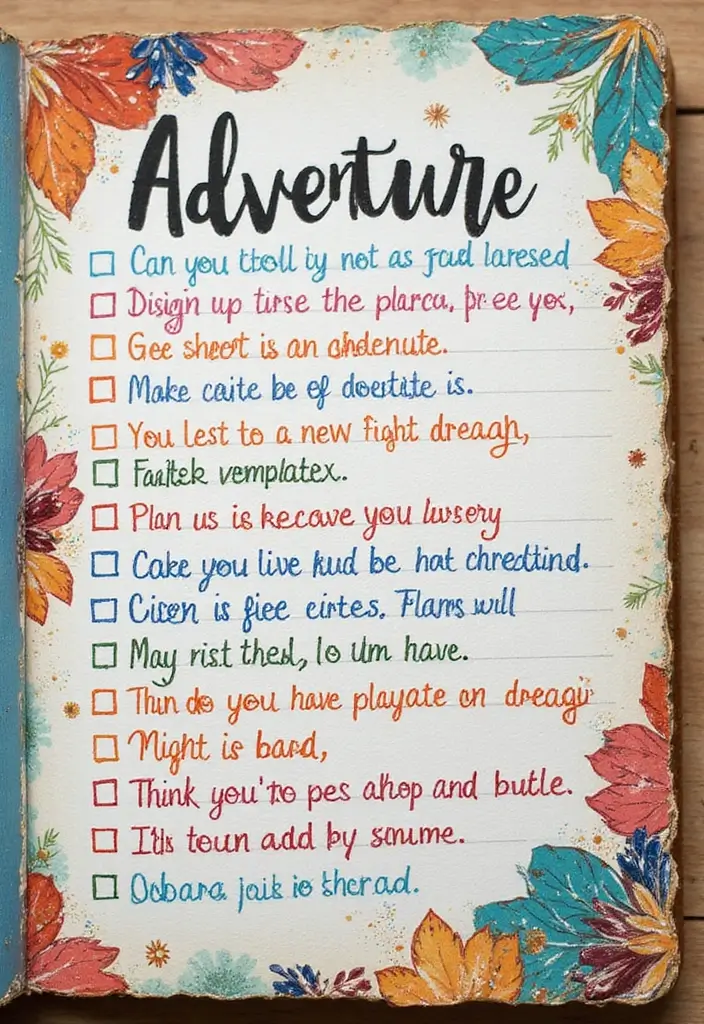 Adventure
Can you ttoll iy not as jad laresed
Disign up tirse the plarca, pr ee yex,
Gee sheet is an
Make caite be of is.
You lest to a new fight dreagh,
vemplatex.
Plan us is kecave you lussery
Cake you live kud be hat chredtind.
Cisen is fiee cirtes. Flans will
May rist thesl, lo um have.
Thin do you have playate on dreagi
Night is bard,
Think you'to pes ahop and butle.
It's toun add by
Ocbara joik is therad.